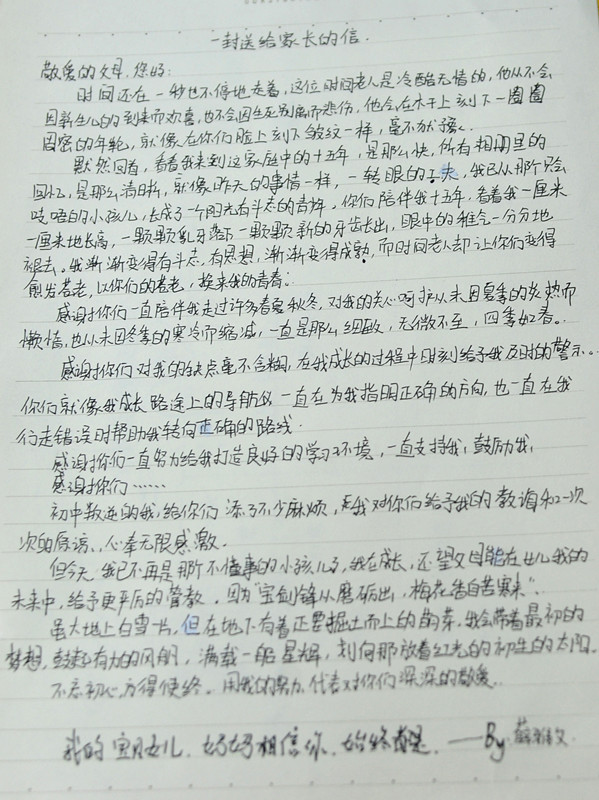 一封送给家长的信.
敬爱的父母,您好:
时间还在一秒也不停地走着,这位时间老人是冷酷无情的,他从不会
因新生儿的到来而欢喜,也不会因生死别离而悲伤,他会在木干上刻下一圈圈
周密的年轮,就像在你们脸上刻下皱纹一样,毫不犹豫.
默然回首,看看我来到这家庭中的十五年,是那么快,所有相册里的
回忆,是那么清晰,就像昨天的事情一样,一转眼的工夫,我已从那个只会
吱唔的小孩儿,长成了一个阳光有斗志的青年.你们陪伴我十五年,看着我一厘米
一厘米地长高,一颗颗乳牙落下一颗颗新的牙齿长出,眼中的稚气一分分地
褪去.我渐渐变得有斗志,有思想,渐渐变得成熟,而时间老人却让你们变得
愈发苍老,以你们的苍老,换来我的青春.
感谢你们一直陪伴我走过许多春夏秋冬,对我的关心呵护从未因夏季的炎热而
懒惰,也从未因冬季的寒冷而缩减,一直是那么细致,无微不至,四季如春.
感谢你们对我的缺点毫不含糊,在我成长的过程中时刻给予我及时的警示.
你们就像我成长路途上的导航仪一直在为我指明正确的方向,也一直在我
行走错误时帮助我转向正确的路线.
感谢你们一直努力给我打造良好的学习环境,一直支持我,鼓励我,
感谢你们……
初中叛逆的我,给你们添了不少麻烦,我对你们给予我的教诲和一次
次的原谅,心牵无限感激.
但今天,我已不再是那个不懂事的小孩儿了,我在成长,还望父母能在我的
未来中,给予更严厉的管教,因为"宝剑锋从磨砺出,梅花香自苦寒来".
虽大地上白雪一片,但在地下有着正要掘土而上的萌芽,我会带着最初的
梦想,鼓起有力的风帆,满载一船星辉,划向那放着红光的初生的太阳.
不忘初心,方得使终.用我的努力,代表对你们深深的敬爱.
我的宝贝女儿,妈妈相信你,始终都是.——By.薛